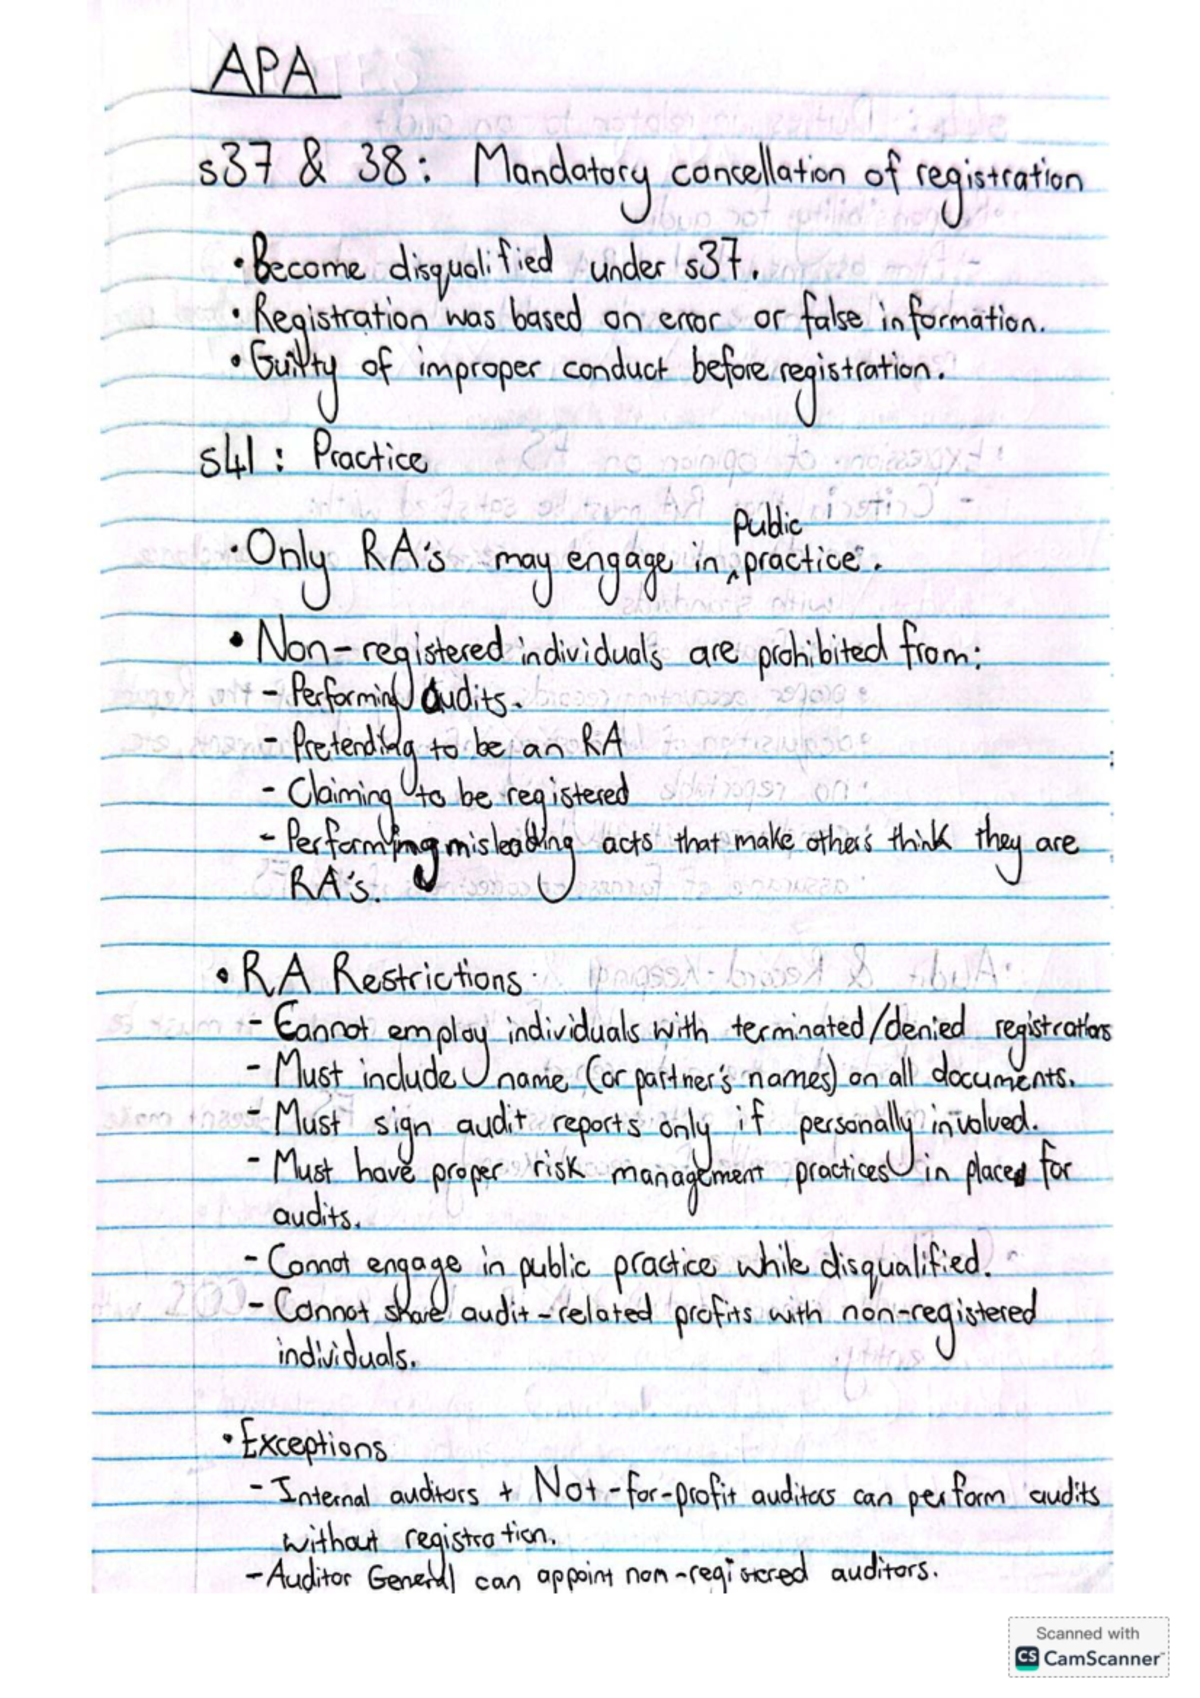 APA
s37 & 38: Mandatory cancellation of registration
• Become disqualified under s37.
• Registration was based on error or false information.
• Guilty of improper conduct before registration.
s41: Practice
• Only RA's may engage in ^public practice.
• Non-registered individuals are prohibited from:
- Performing audits.
- Pretending to be an RA
- Claiming to be registered
- Performing misleading acts that make others think they are
RA's.
• RA Restrictions
- Cannot employ individuals with terminated/denied registrations
- Must include name (or partner's names) on all documents.
- Must sign audit reports only if personally involved.
- Must have proper risk management practices in place for
audits.
- Cannot engage in public practice while disqualified.
- Cannot share audit-related profits with non-registered
individuals.
• Exceptions
- Internal auditors + Not-for-profit auditors can perform audits
without registration.
- Auditor General can appoint non-registered auditors.
Scanned with
CS CamScanner